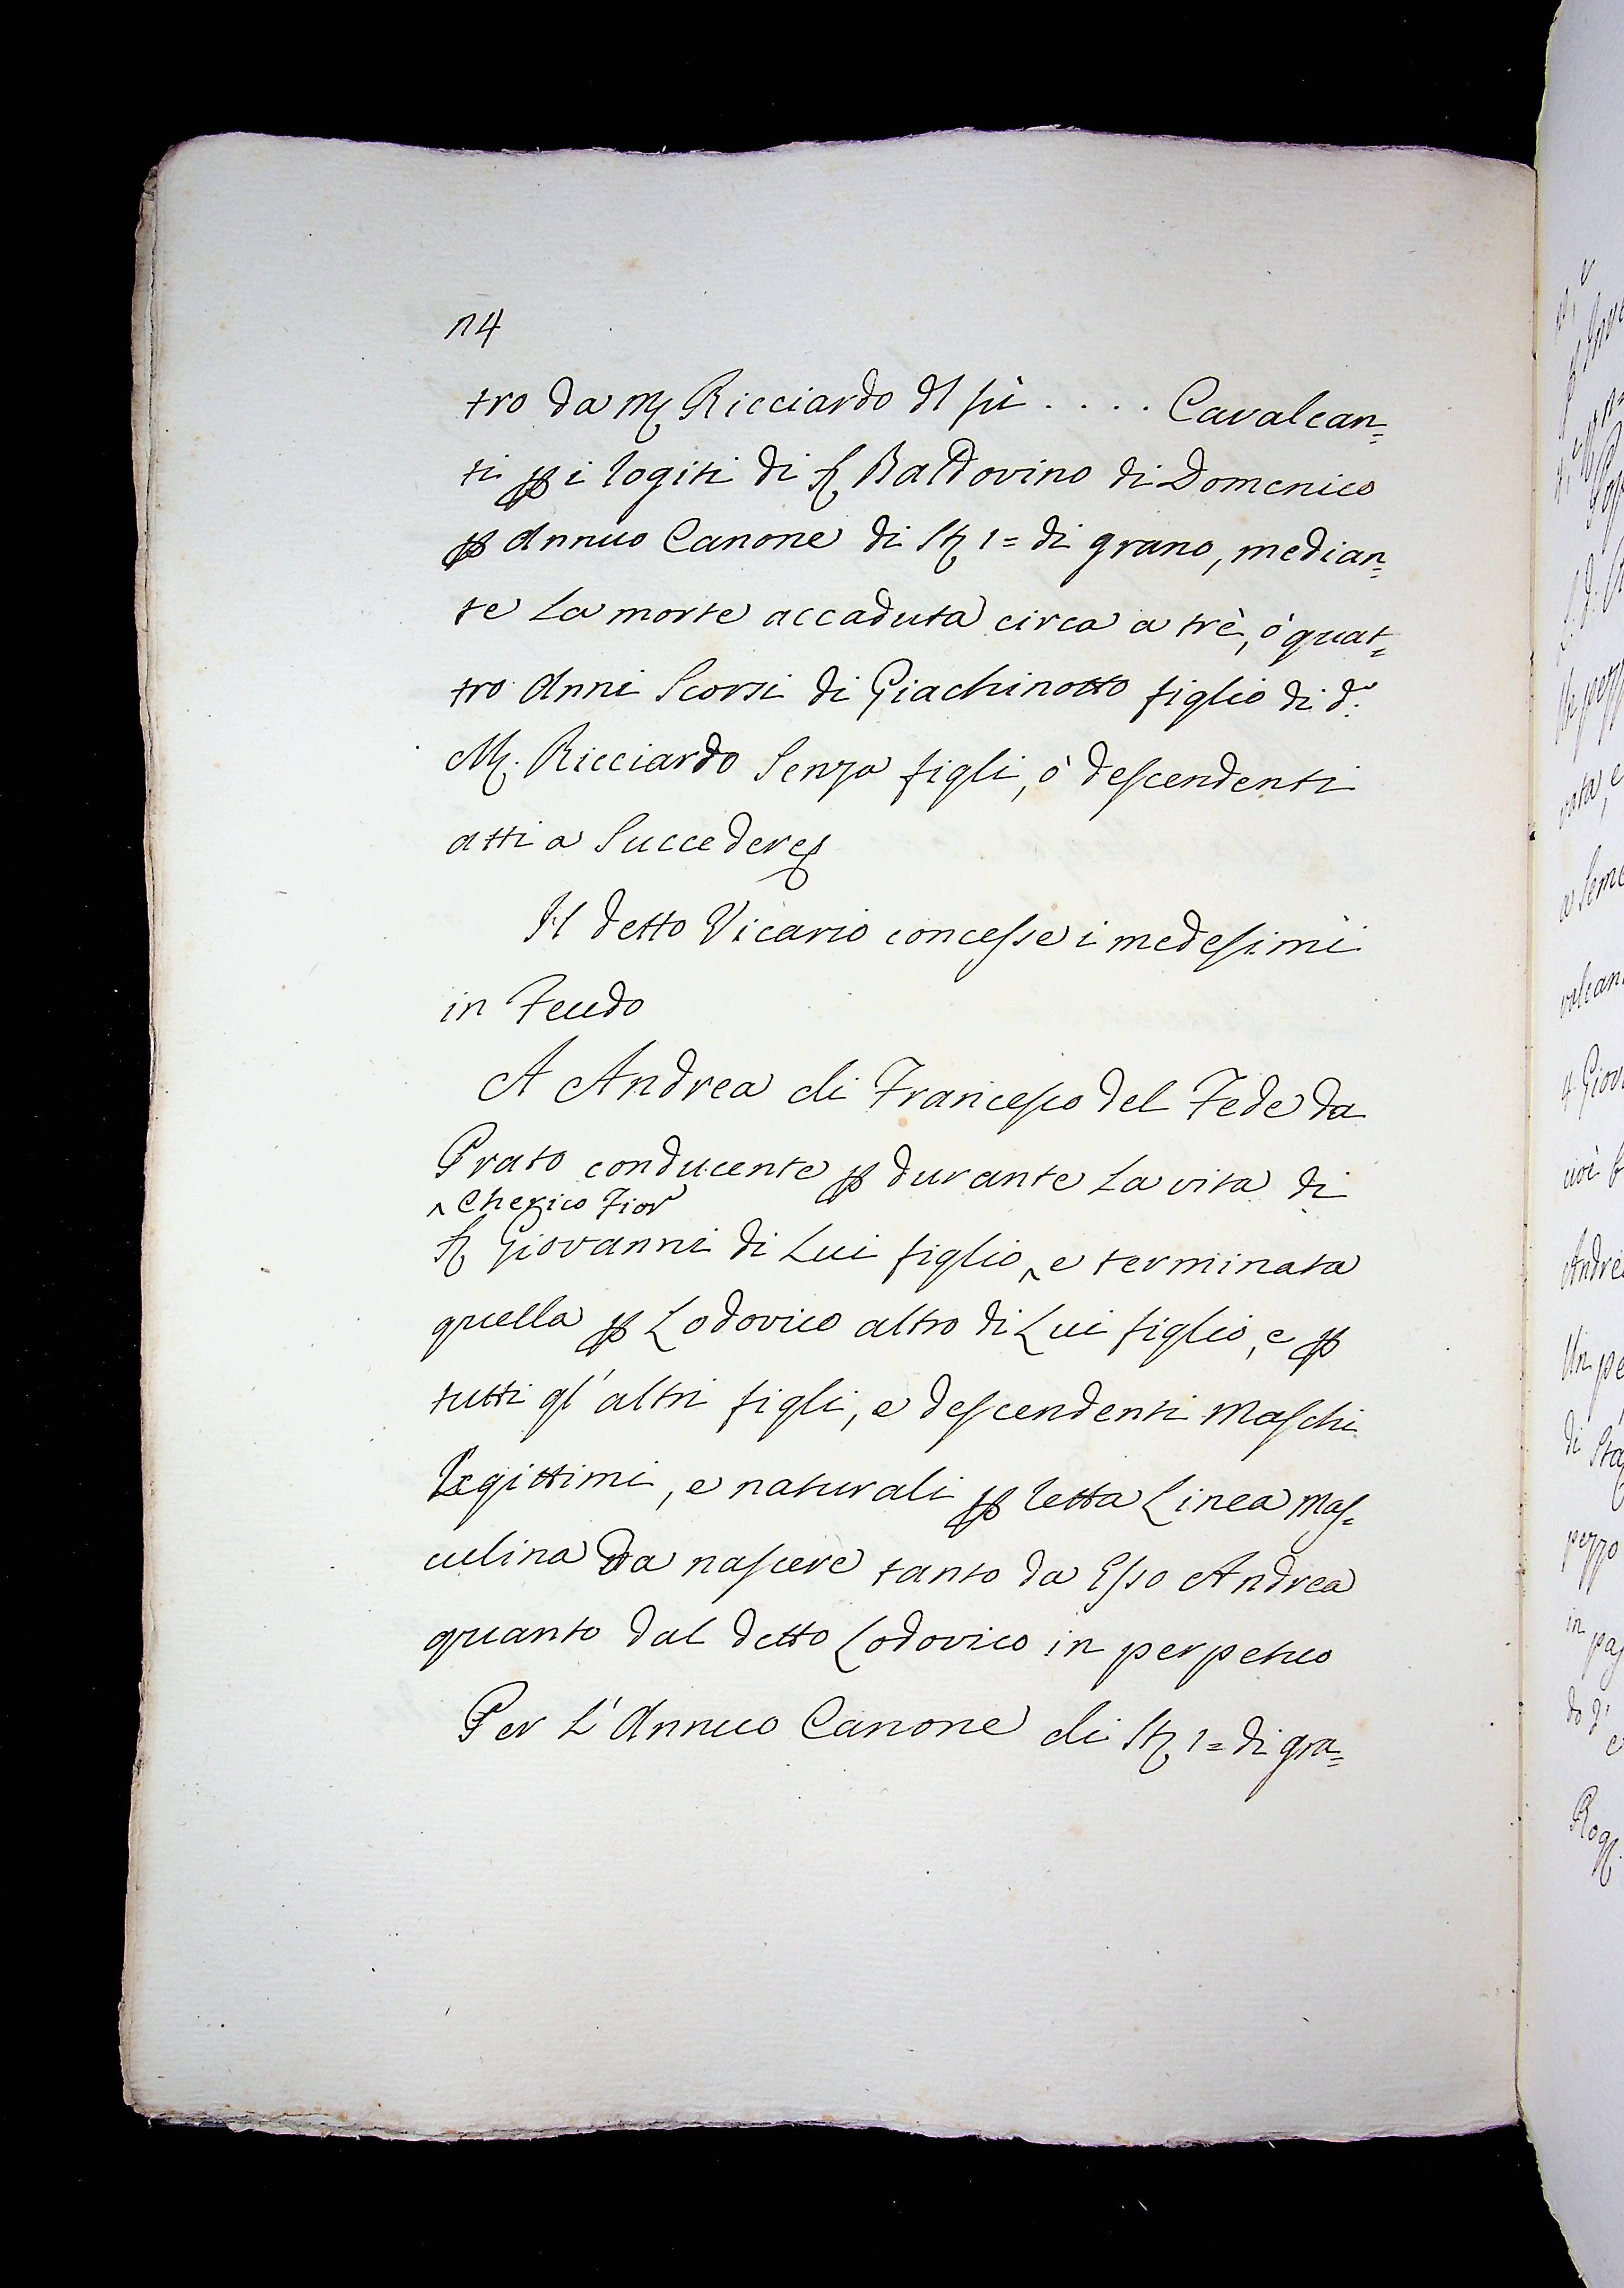 114
tro da Mr Ricciardo dl fù .... Cavalcan=
ti p i rogiti di Sr Baldovino di Domenico
p Annuo Canone di Sta 1= di grano, median=
te La morte accaduta circa a trè, ò quat=
tro Anni Scorsi di Giachinotto figlio di do:
Mr. Ricciardo Senza figli, ò descendenti
atti a Succedere
Il detto Vicario concesse i medesimi
in Feudo
A Andrea di Francesco del Fede da
Prato conducente p durante La vita di
^ Cherico Fiorno
Sr Giovanni di Lui figlio ^ e terminata
quella p Lodovico altro di Lui figlio, e p
tutti gl'altri figli, e descendenti Maschi
Legittimi, e naturali p retta Linea Mas=
culina da nascere tanto da Esso Andrea
quanto dal detto Lodovico in perpetuo
Per L'Annuo Canone di Sta 1= di gra=